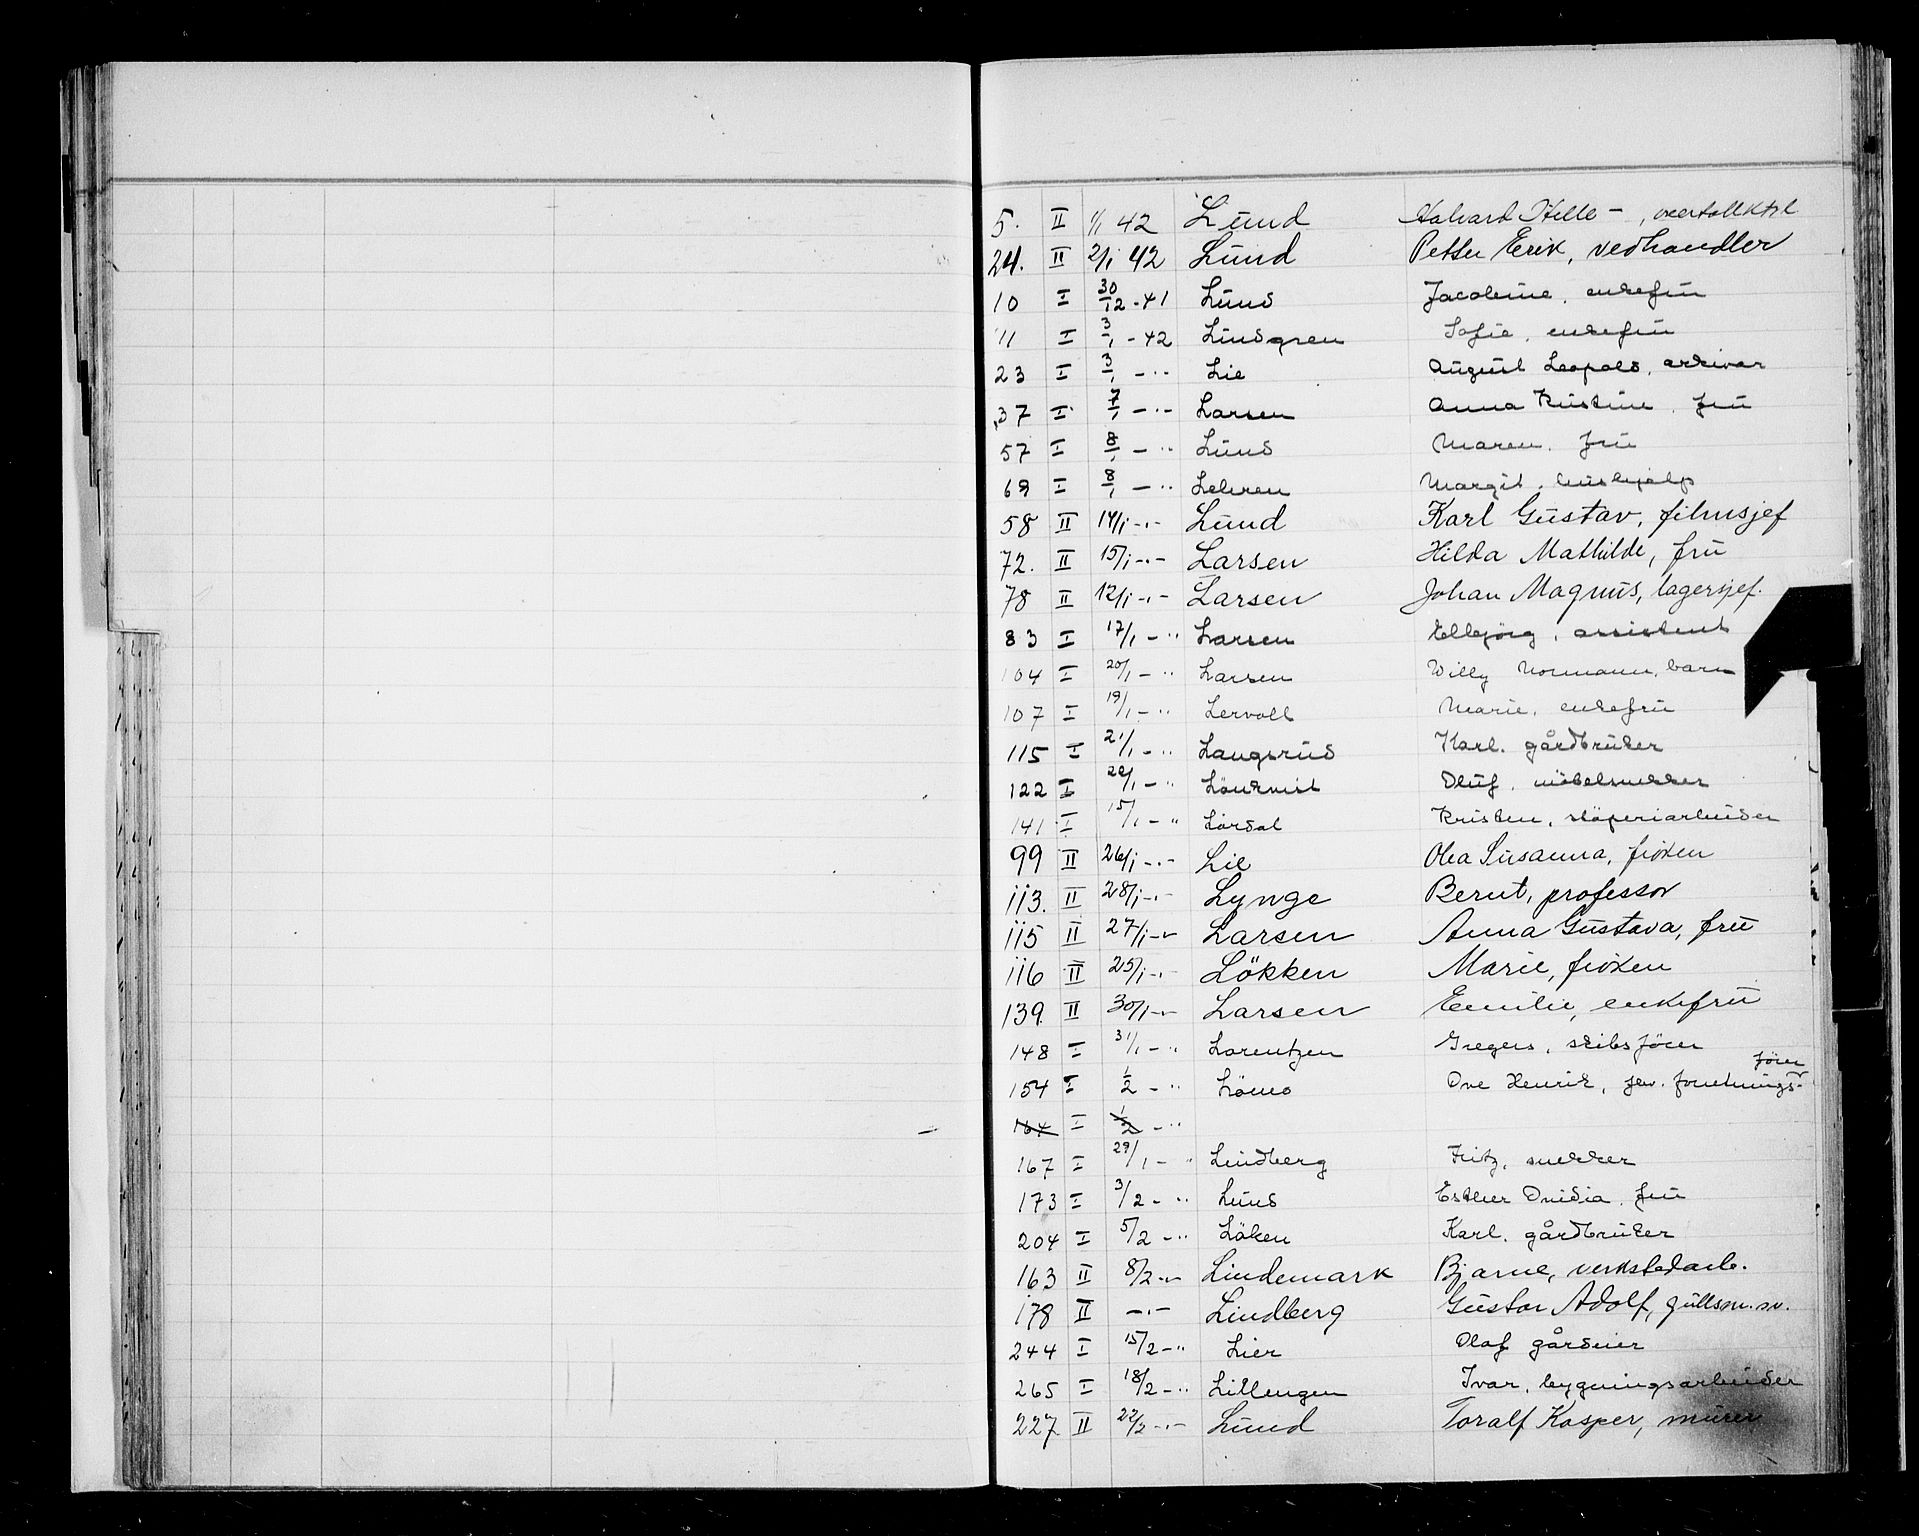 5. II 1/1 42 Lund Halvard Helle -,
24. II 2/1 42 Lund Petter Erik, vedhandler
10 I 30/12 - 41 Lund Jacobine, enkefru
11 I 3/1 - 42 Lindgren Sofie, enkefru
23 I 3/1 - " Lie August Leopold, arkivar
37 I 7/1 - " Larsen Anna Kristine, fru
57 I 8/1 - " Lund Maren, fru
69 I 8/1 - " Lehren Margit, hushjelp
58 II 14/1 -"- Lund Karl Gustav, filmsjef
72. II 15/1 -"- Larsen Hilda Mathilde, fru
78 II 12/1 -"- Larsen Johan Magnus, lagersjef.
83 I 17/1 - " Larsen Ellbjörg, assistent
104 I 20/1 - " Larsen Willy Normann, barn
107 I 19/1 - " Lervoll Marie, enkefru
115 I 21/1 - " Langsrud Karl, gårdbruker
122 I 22/1 - " Lönkvist Oluf, möbelsnekker
141 I 15/1 - " Lördal Kristen, stöperiarbeider
99 II 26/1 -"- Lie Olea Susanna, frøken
113. II 28/1 -"- Lynge Bernt, professor
115 II 27/1 -"- Larsen Anna Gustava, fru
116 II 25/1 -"- Lökken Marie, frøken
139. II 30/1 -"- Larsen Emilie, enkefru
148 I 31/1 - " Lorentzen Gregers, skibsförer
154 I 1/2 - " Lömo Ove Henrik, fhv. forretnings-
förer
164 I 1/2 - "
167 I 29/1 - " Lindberg Fritz, snekker
173 I 3/2 - " Lund Esther Ovidia, fru
204 I 5/2 - " Löken Karl, gårdbruker
163 II 8/2 -"- Lindemark Bjarne, verkstedarb.
178 II -"- Lindberg Gustav Adolf, gullsm.sv.
244 I 15/2 - " Lier Olaf gårdeier
265 I 18/2 - " Lillengen Ivar, bygningsarbeider
227 II 22/2 -"- Lund Toralf Kasper, murer